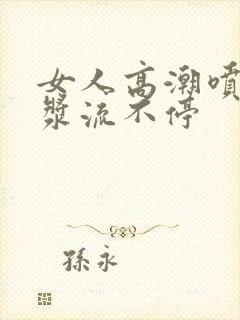 女人高潮噴
漿流不停
孫永